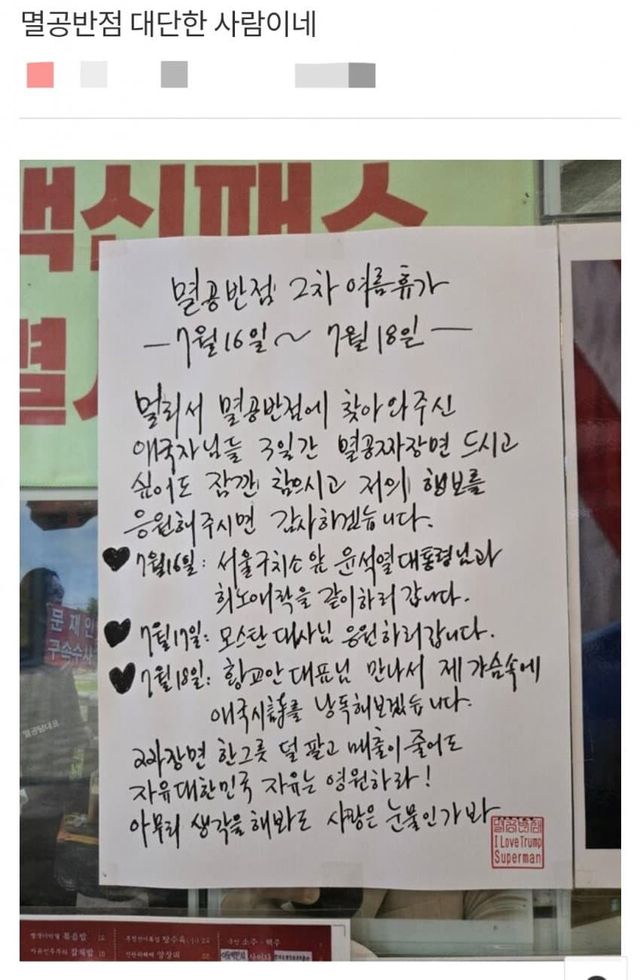 멸공반점 대단한 사람이네
백신패스
멸공반점 2차 여름휴가
- 7월 16일 ~ 7월 18일 -
멀리서 멸공반점에 찾아와주신
애국자님들 3일간 멸공짜장면 드시고
싶어도 잠깐 참으시고 저의 행보를
응원해주시면 감사하겠습니다.
♥ 7월16일: 서울구치소앞 윤석열대통령님과
희노애락을 같이하러 갑니다.
♥ 7월17일: 모스탄 대사님 응원하러갑니다.
♥ 7월18일: 황교안 대표님 만나서 제 가슴속에
애국시詩를 낭독해보겠습니다.
짜장면 한그릇 덜 팔고 매출이 줄어도
자유대한민국 자유는 영원하라!
아무리 생각을 해봐도 사랑은 눈물인가봐
멸공반점
I Love Trump
Superman
문재인
구속수사
멸공반점 볶음밥
소주·맥주